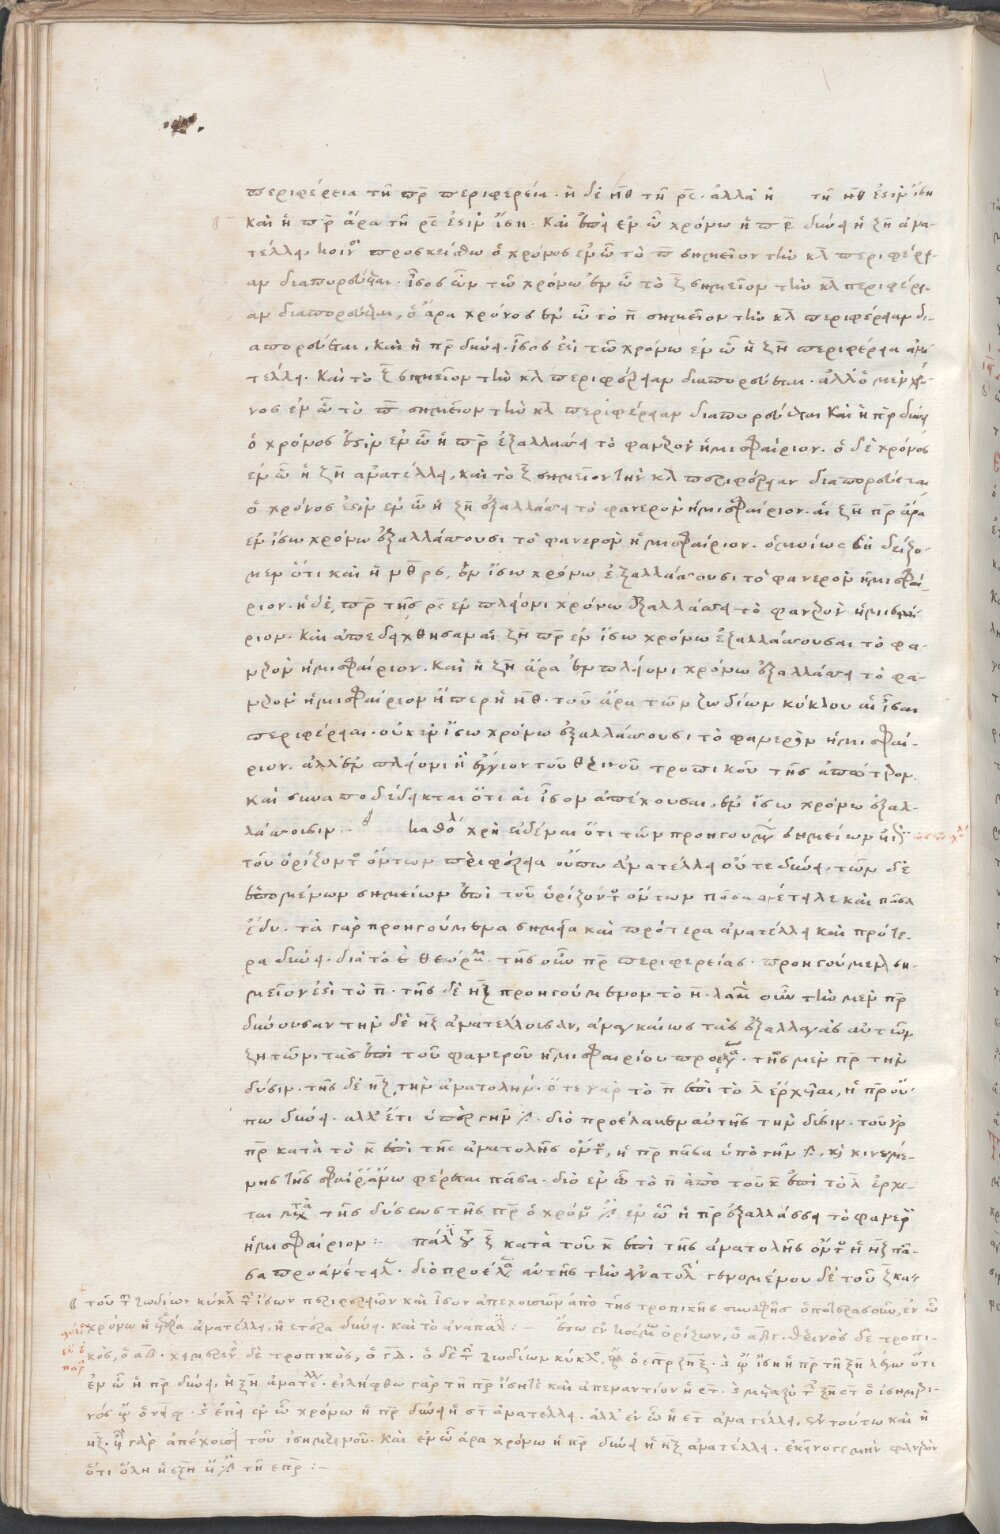 περιφέρεια τῆ πρ περιφερεία. ἡ δὲ ηθ τῆ ρς. ἀλλὰ ἡ τῆ ηθ ἐστὶν ἴση
καὶ ἡ πρ ἄρα τῆ ρς ἐστὶν ἴση. καὶ ἐπεὶ ἐν ᾧ χρόνω ἡ πρ δύνει ἡ ξη ἀνα-
τέλλει, κοινὸς προσκείσθω ὁ χρόνος ἐν ᾧ τὸ π σημεῖον τὴν κλ περιφέρει-
αν διαπορεύεται. ἴσος ὢν τῶ χρόνω ἐν ᾧ τὸ ξ σημεῖον τὴν κλ περιφέρει-
αν διαπορεύεται, ὁ ἄρα χρόνος ἐν ᾧ τὸ π σημεῖον τὴν κλ περιφέρειαν δι-
απορεύεται, καὶ ἡ πρ δύνει. ἴσος ἐστὶ τῶ χρόνω ἐν ᾧ ἡ ξη περιφέρεια ἀνα-
τέλλει. καὶ τὸ ξ σημεῖον τὴν κλ περιφέρειαν διαπορεύεται. ἀλλ' ὁ μὲν χρό-
νος ἐν ᾧ τὸ π σημεῖον τὴν κλ περιφέρειαν διαπορεύεται καὶ ἡ πρ δύνει
ὁ χρόνος ἐστὶν ἐν ᾧ ἡ πρ ἐξαλλάσσει τὸ φανερὸν ἡμισφαίριον. ὁ δὲ χρόνος
ἐν ᾧ ἡ ξη ἀνατέλλει, καὶ τὸ ξ σημεῖον τὴν κλ περιφέρειαν διαπορεύεται
ὁ χρόνος ἐστὶν ἐν ᾧ ἡ ξη ἐξαλλάσσει τὸ φανερὸν ἡμισφαίριον. αἱ ξη πρ ἄρα
ἐν ἴσω χρόνω ἐξαλλάσσουσι τὸ φανερὸν ἡμισφαίριον. ὁμοίως δὴ δείξο-
μεν ὅτι καὶ ἡ ηθ ρς, ἐν ἴσω χρόνω ἐξαλλάσσουσι τὸ φανερὸν ἡμισφαί-
ριον. ἡ δὲ, πρ τῆς ρς ἐν πλείονι χρόνω ἐξαλλάσσει τὸ φανερὸν ἡμισφαί-
ριον. καὶ ἀπεδείχθησαν αἱ ξη πρ ἐν ἴσω χρόνω ἐξαλλάσσουσαι τὸ φα-
νερὸν ἡμισφαίριον. καὶ ἡ ξη ἄρα ἐν πλείονι χρόνω ἐξαλλάσσει τὸ φα-
νερὸν ἡμισφαίριον ἤπερ ἡ ηθ. τοῦ ἄρα τῶν ζωδίων κύκλου αἱ ἴσαι
περιφέρειαι. οὐκ ἐν ἴσω χρόνω ἐξαλλάσσουσι τὸ φανερὸν ἡμισφαί-
ριον. ἀλλ' ἐν πλείονι ἡ ἔγγιον τοῦ θερινοῦ τροπικοῦ τῆς ἀπώτερον.
καὶ συναποδέδεικται ὅτι αἱ ἴσον ἀπέχουσαι, ἐν ἴσω χρόνω ἐξαλ-
λάσσουσιν :- καθόλου χρὴ εἰδέναι ὅτι τῶν προηγουμένων σημείων
τοῦ ὁρίζοντος ὄντων περιφέρεια οὔπω ἀνατέλλει οὔτε δύνει. τῶν δὲ
ἑπομένων σημείων ἐπὶ τοῦ ὁρίζοντος ὄντων πᾶσα ἀνέτειλε καὶ πᾶσα
ἔδυ. τὰ γὰρ προηγούμενα σημεῖα καὶ πρότερα ἀνατέλλει καὶ πρότε-
ρα δύνει. διὰ τὸ θεώρημα. τῆς οὖν πρ περιφερείας. προηγούμενον ση-
μεῖον ἐστὶ τὸ π. τῆς δὲ ηξ προηγούμενον τὸ η. λαβὼν οὖν τὴν μὲν πρ
δύνουσαν τὴν δὲ ηξ ἀνατέλλουσαν, ἀναγκαίως τὰς ἐξαλλαγὰς αὐτῶν
ζητῶν, τὰς ἐπὶ τοῦ φανεροῦ ἡμισφαιρίου τῆς μὲν πρ τὴν
δύσιν. τῆς δὲ ηξ τὴν ἀνατολήν. ὅτε γὰρ τὸ π ἐπὶ τὸ λ ἔρχεται, ἡ πρ οὔ-
πω δύνει. ἀλλ' ἔτι ὑπὲρ γῆν ἐστι. διὸ προέλαβεν αὐτῆς τὴν δύσιν. τοῦ γὰρ
πρ κατὰ τὸ κ ἐπὶ τῆς ἀνατολῆς ὄντος, ἡ πρ πᾶσα ὑπὸ γῆν ἐστι. καὶ κινουμέ-
νης τῆς σφαίρας ἄνω φέρεται πᾶσα. διὸ ἐν ᾧ τὸ π ἀπὸ τοῦ κ ἐπὶ τὸ λ ἔρχε-
ται μετὰ τῆς δύσεως τῆς πρ ὁ χρόνος ἐστὶν ἐν ᾧ ἡ πρ ἐξαλλάσσει τὸ φανερὸν
ἡμισφαίριον :- πάλιν τοῦ ξ κατὰ τοῦ κ ἐπὶ τῆς ἀνατολῆς ὄντος ἡ ηξ πᾶ-
σα προανέτειλε. διὸ προέλαβεν αὐτῆς τὴν ἀνατολὴν γενομένου δὲ τοῦ ξ κα-
τοῦ τῶν ζωδίων κύκλου τῶν ἴσων περιφερειῶν καὶ ἴσον ἀπεχουσῶν ἀπὸ τῆς τροπικῆς συναφῆς ὁποιασοῦν, ἐν ᾧ
χρόνω ἡ ἑτέρα ἀνατέλλει, ἡ ἑτέρα δύνει. καὶ τὸ ἀνάπαλιν :- ἔστω ἐν κόσμω ὁρίζων, ὁ αβγ. θερινὸς δὲ τροπι-
κὸς, ὁ αβ. χειμερινὸς δὲ τροπικὸς, ὁ γδ. ὁ δὲ τῶν ζωδίων κύκλος, ἔστω ὁ επρζηξ. καὶ ἔστω ἴση ἡ πρ τῆ ξη λέγω ὅτι
ἐν ᾧ ἡ πρ δύνει, ἡ ξη ἀνατέλλει. εἰλήφθω γὰρ τῆ πρ ἴση τε καὶ ἀπεναντίον ἡ στ.
νός. καὶ ἐπεὶ ἐν ᾧ χρόνω ἡ πρ δύνει ἡ στ ἀνατέλλει. ἀλλ' ἐν ᾧ ἡ στ ἀνατέλλει, ἐν τούτω καὶ ἡ
ηξ. ἴσον γὰρ ἀπέχουσι τοῦ ἰσημερινοῦ. καὶ ἐν ᾧ ἄρα χρόνω ἡ πρ δύνει ἡ ηξ ἀνατέλλει. φανερὸν
ὅτι ὅλη ἡ εξη ἴση ἐστὶ τῆ επρ :-